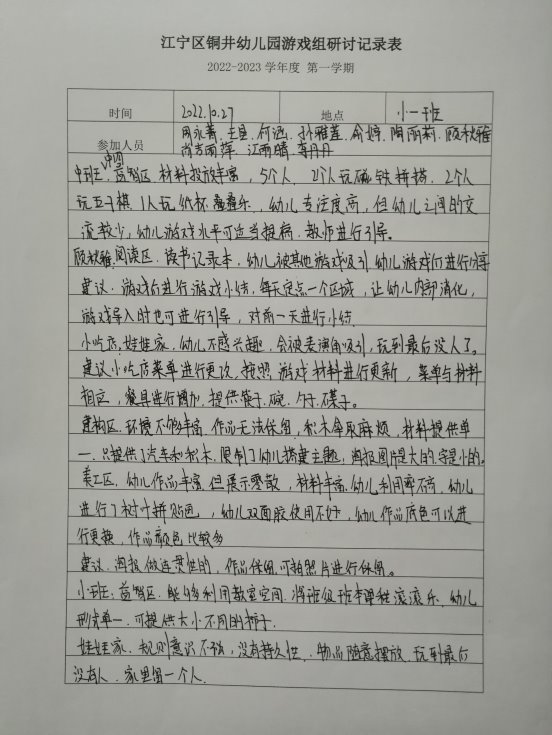 江宁区铜井幼儿园游戏组研讨记录表
2022-2023 学年度 第一学期
时间 2022.10.27 地点 小一班
参加人员 周永菁、王昱、何涵、孙雅莲、俞婷、陶丽莉、顾秋雅
尚吉雨萍、江雨晴、李丹丹
中班: 益智区 材料投放丰富，5个人，2个人玩磁铁拼搭，2个人
玩五子棋，1人玩纸杯叠叠乐，幼儿专注度高，但幼儿之间的交
流较少，幼儿游戏水平可适当提高，教师进行引导。
顾秋雅: 阅读区: 读书记录本，幼儿被其他游戏吸引 幼儿游戏前进行分享
建议: 游戏后进行游戏小结，每天定点一个区域，让幼儿内部消化，
游戏导入时也可进行引导，对前一天进行小结
小吃店、娃娃家: 幼儿不感兴趣，会被表演角吸引，玩到最后没人了。
建议小吃店菜单进行更改，按照游戏材料进行更新，菜单与材料
相应，餐具进行增加，提供筷子、碗、勺子、碟子。
建构区: 环境不够丰富 作品无法保留，积木拿取麻烦，材料提供单
一，只提供了汽车和积木，限制了幼儿搭建主题，海报图片是大的 字是小的。
美工区: 幼儿作品丰富 但展示零散，材料丰富，幼儿利用率不高，幼儿
进行了树叶拼贴画，幼儿双面胶使用不好，幼儿作品底色可以进
行更换，作品颜色比较多
建议: 海报做连贯性的，作品保留可拍照片进行保留。
小班: 益智区: 能够利用教室空间，将班级班本课程滚滚乐，幼儿
形式单一，可提供大小不同的柿子
娃娃家: 规则意识不强，没有持久性，物品随意摆放，玩到最后
没有人，家里留一个人